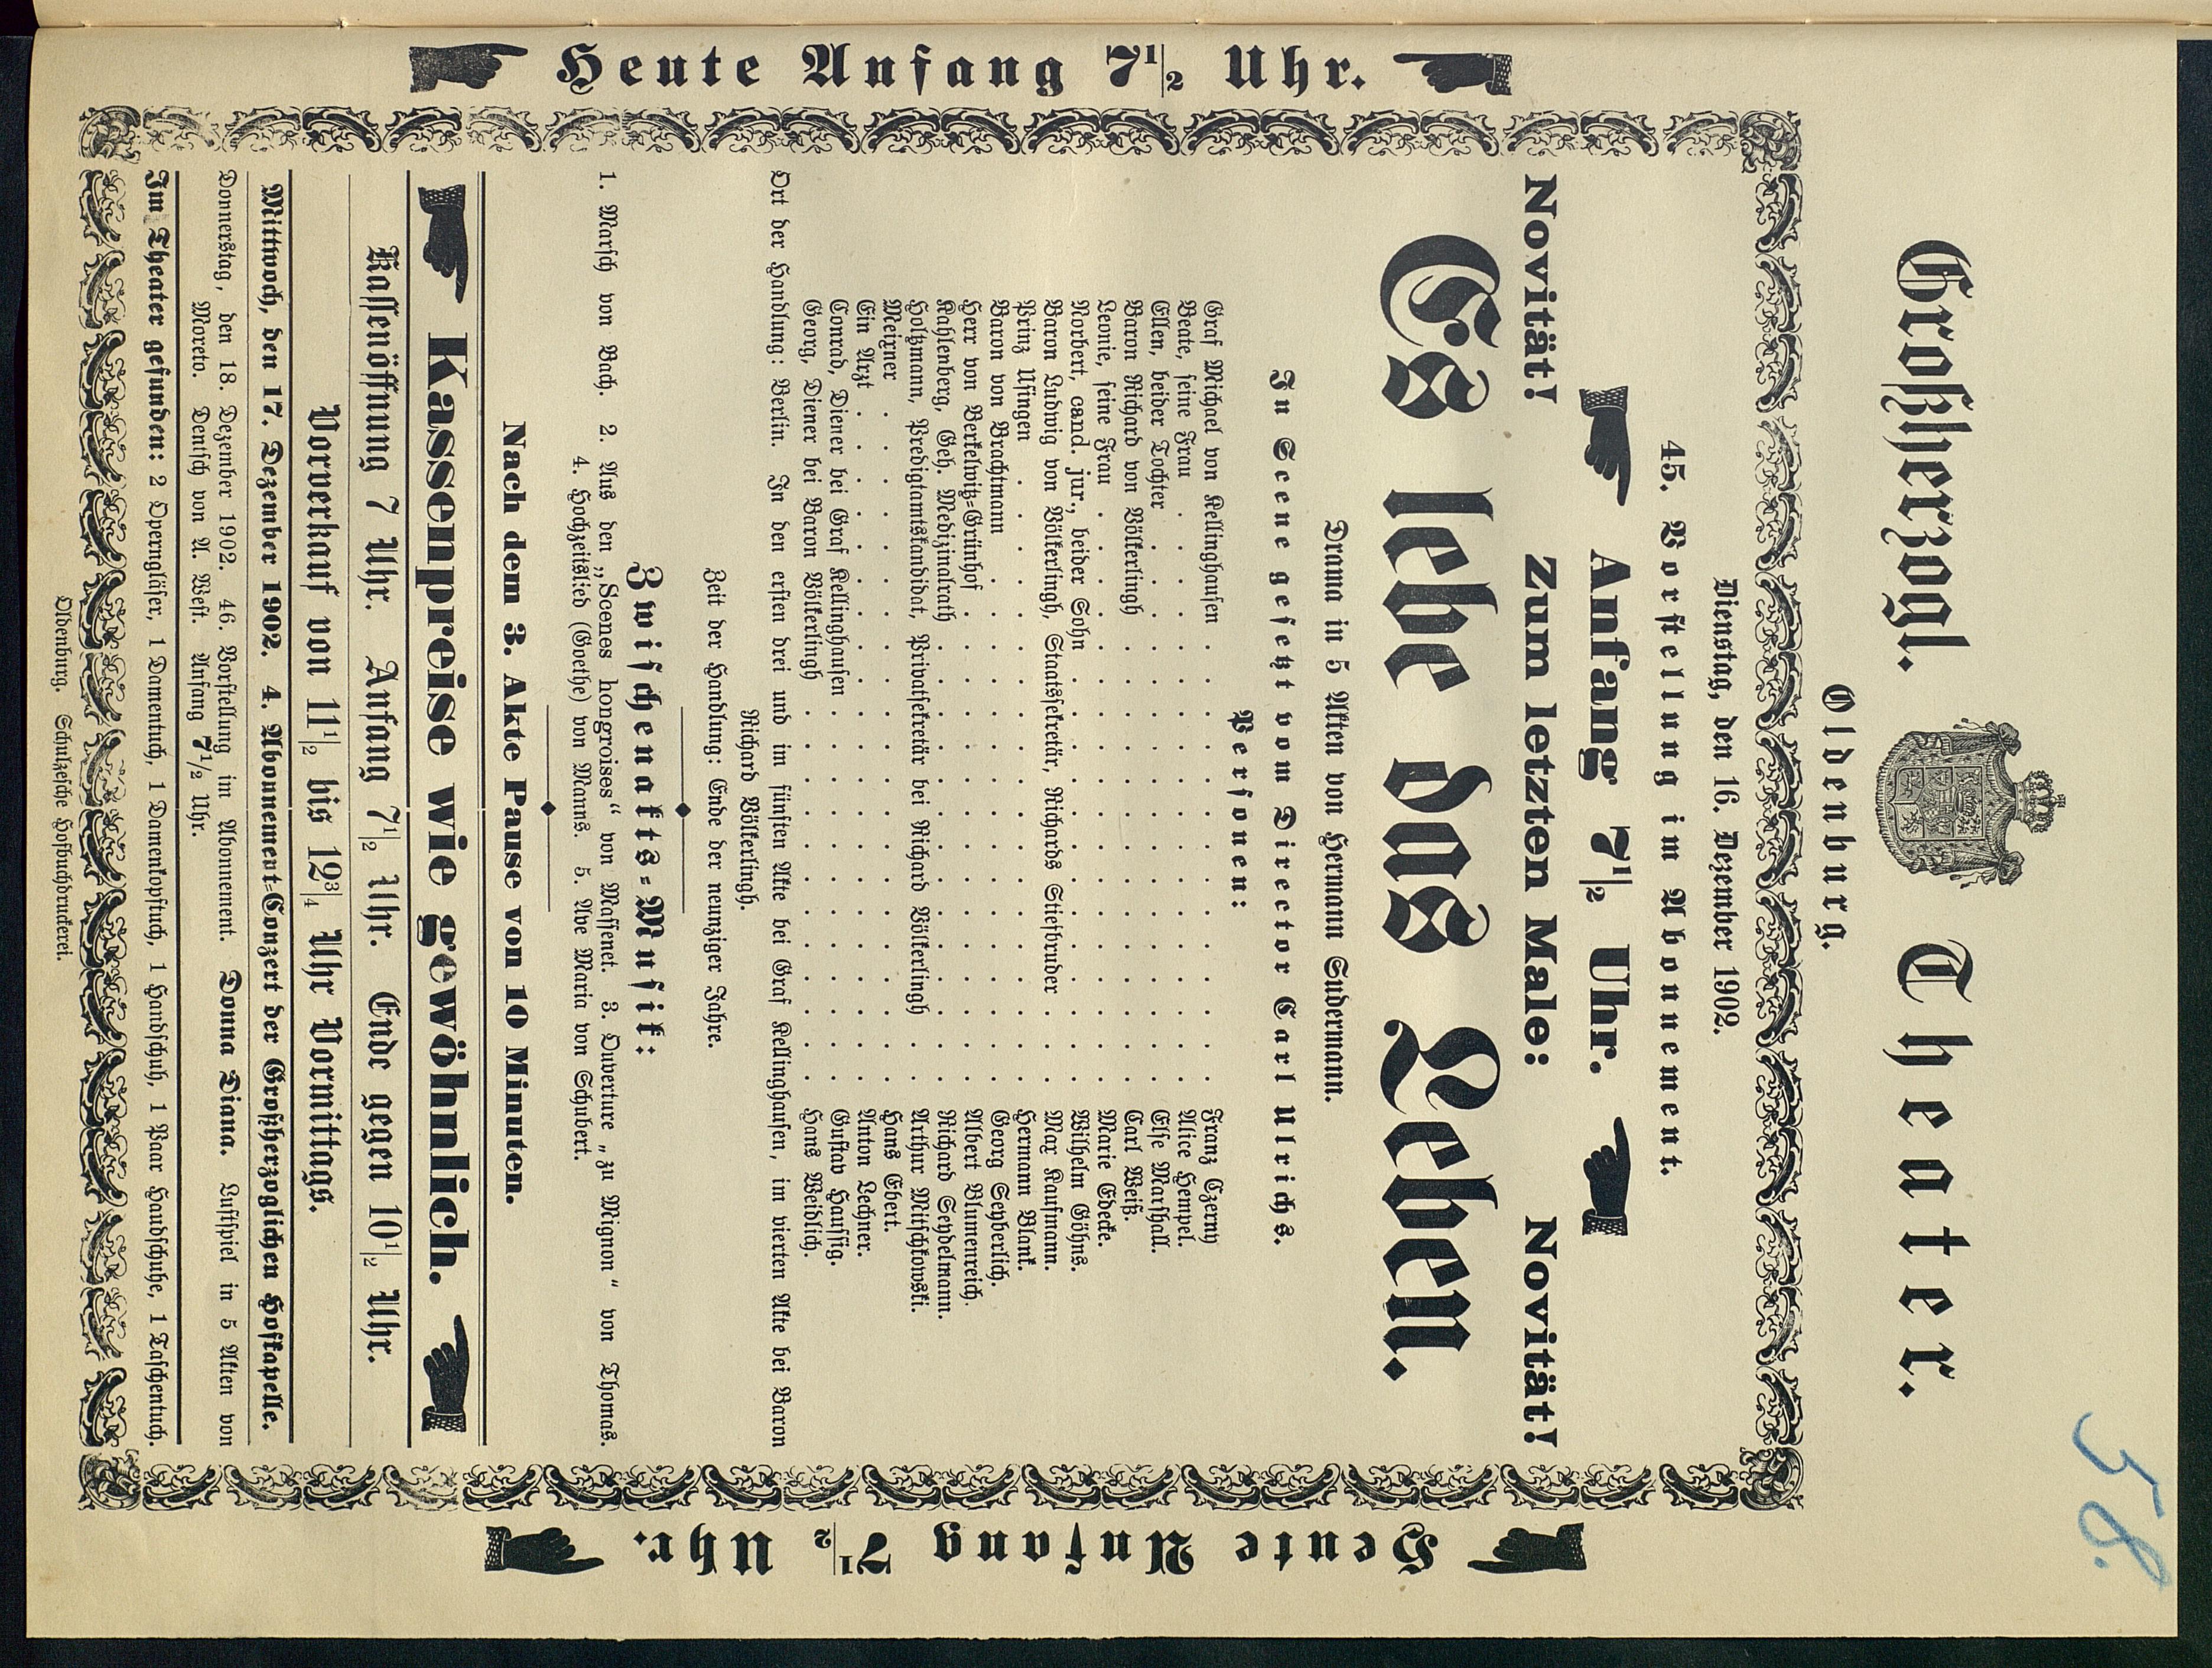 58.
Großherzogl. Theater.
Oldenburg.
Dienstag, den 16. Dezember 1902.
45. Vorstellung im Abonnement.
Anfang 7 1/2 Uhr.
Novität! Zum letzten Male: Novität!
Es lebe das Leben.
Drama in 5 Akten von Hermann Sudermann.
In Scene gesetzt vom Director Carl Ulrichs.
Personen:
Graf Michael von Kellinghausen . . . . . Franz Czerny
Beate, seine Frau . . . . . Alice Hempel.
Ellen, beider Tochter . . . . . Else Marshall.
Baron Richard von Völkerlingh . . . . . Carl Weiß.
Leonie, seine Frau . . . . . Marie Edecke.
Norbert, cand. jur., beider Sohn . . . . . Wilhelm Göhns.
Baron Ludwig von Völkerlingh, Staatssekretär, Richards Stiefbruder . . Max Kaufmann.
Prinz Usingen . . . . . Hermann Blank.
Baron von Brachtmann . . . . . Georg Seyberlich.
Herr von Berkelwitz-Grünhof . . . . . Albert Blumenreich.
Kahlenberg, Geh. Medizinalrath . . . . . Richard Seydelmann.
Holtzmann, Predigtamtskandidat, Privatsekretär bei Richard Völkerlingh . . Arthur Mitschkowski.
Meixner . . . . . Hans Ebert.
Ein Arzt . . . . . Anton Lechner.
Conrad, Diener bei Graf Kellinghausen . . . . . Gustav Haussig.
Georg, Diener bei Baron Völkerlingh . . . . . Hans Weidlich.
Ort der Handlung: Berlin. In den ersten drei und im fünften Akte bei Graf Kellinghausen, im vierten Akte bei Baron
Richard Völkerlingh.
Zeit der Handlung: Ende der neunziger Jahre.
Zwischenakts-Musik:
1. Marsch von Bach. 2. Aus den „Scenes hongroises“ von Massenet. 3. Ouverture „zu Mignon“ von Thomas.
4. Hochzeitslied (Goethe) von Manns. 5. Ave Maria von Schubert.
Nach dem 3. Akte Pause von 10 Minuten.
Kassenpreise wie gewöhnlich.
Kassenöffnung 7 Uhr. Anfang 7 1/2 Uhr. Ende gegen 10 1/2 Uhr.
Vorverkauf von 11 1/2 bis 12 3/4 Uhr Vormittags.
Mittwoch, den 17. Dezember 1902. 4. Abonnement-Conzert der Großherzoglichen Hofkapelle.
Donnerstag, den 18. Dezember 1902. 46. Vorstellung im Abonnement. Donna Diana. Lustspiel in 5 Akten von
Moreto. Deutsch von A. West. Anfang 7 1/2 Uhr.
Im Theater gefunden: 2 Operngläser, 1 Damentuch, 1 Damenkopftuch, 1 Handschuh, 1 Paar Handschuhe, 1 Taschentuch.
Oldenburg. Schulzesche Hofbuchdruckerei.
Heute Anfang 7 1/2 Uhr.
Heute Anfang 7 1/2 Uhr.